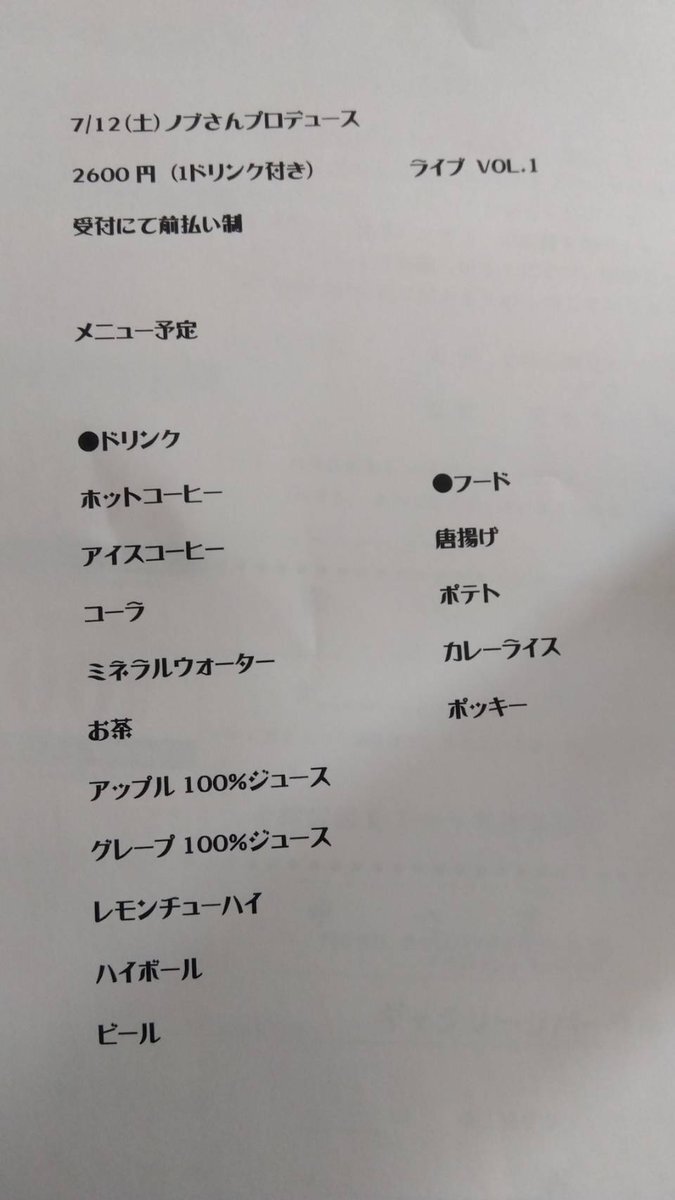 7/12(土)ノブさんプロデュース
2600円（1ドリンク付き） ライブ VOL.1
受付にて前払い制
メニュー予定
●ドリンク
ホットコーヒー
アイスコーヒー
コーラ
ミネラルウォーター
お茶
アップル100%ジュース
グレープ100%ジュース
レモンチューハイ
ハイボール
ビール
●フード
唐揚げ
ポテト
カレーライス
ポッキー